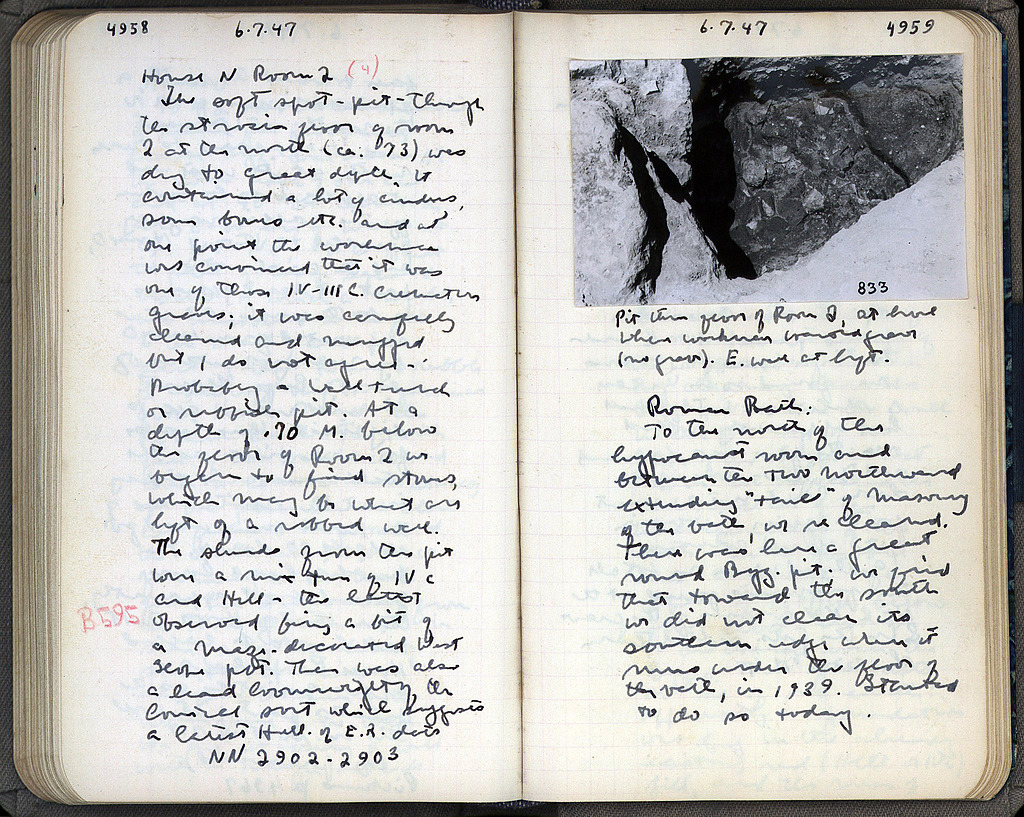 4958
6.7.47
House N Room 2 (4)
The soft spot - pit - through
the strosis floor of room
2 at the north (ca. 73) was
dug to great depth. It
contained a lot of cinders,
some bones etc. and at
one point the workman
was convinced that it was
one of those IV-III C. Cremation
graves; it was carefully
cleaned and
but I do not agree.
Probably a
or refuse pit. At a
depth of .70 M. below
the floor of Room 2 we
began to find stones,
which may be what are
left of a robbed well.
The sherds from the pit
were a mixture of IV c
and Hell - the latest
observed being a bit of
B595
a maze-decorated West
Slope pot. There was also
a lead loomweight, the
Conical sort which suggests
a latest Hell. or E.R. date
NN 2902-2903
6.7.47
4959
833
Pit thru floor of Room 2, at level
when workman wanted grave
(no grave). E. wall at left.
Roman Bath:
To the north of the
hypocaust room and
between the two northward
extending "tails" of masonry
of the bath, we recleaned.
There was here a great
round Byz. pit. We find
that toward the south
we did not clean its
southern edge when it
runs under the floor of
the bath, in 1939. Started
to do so today.